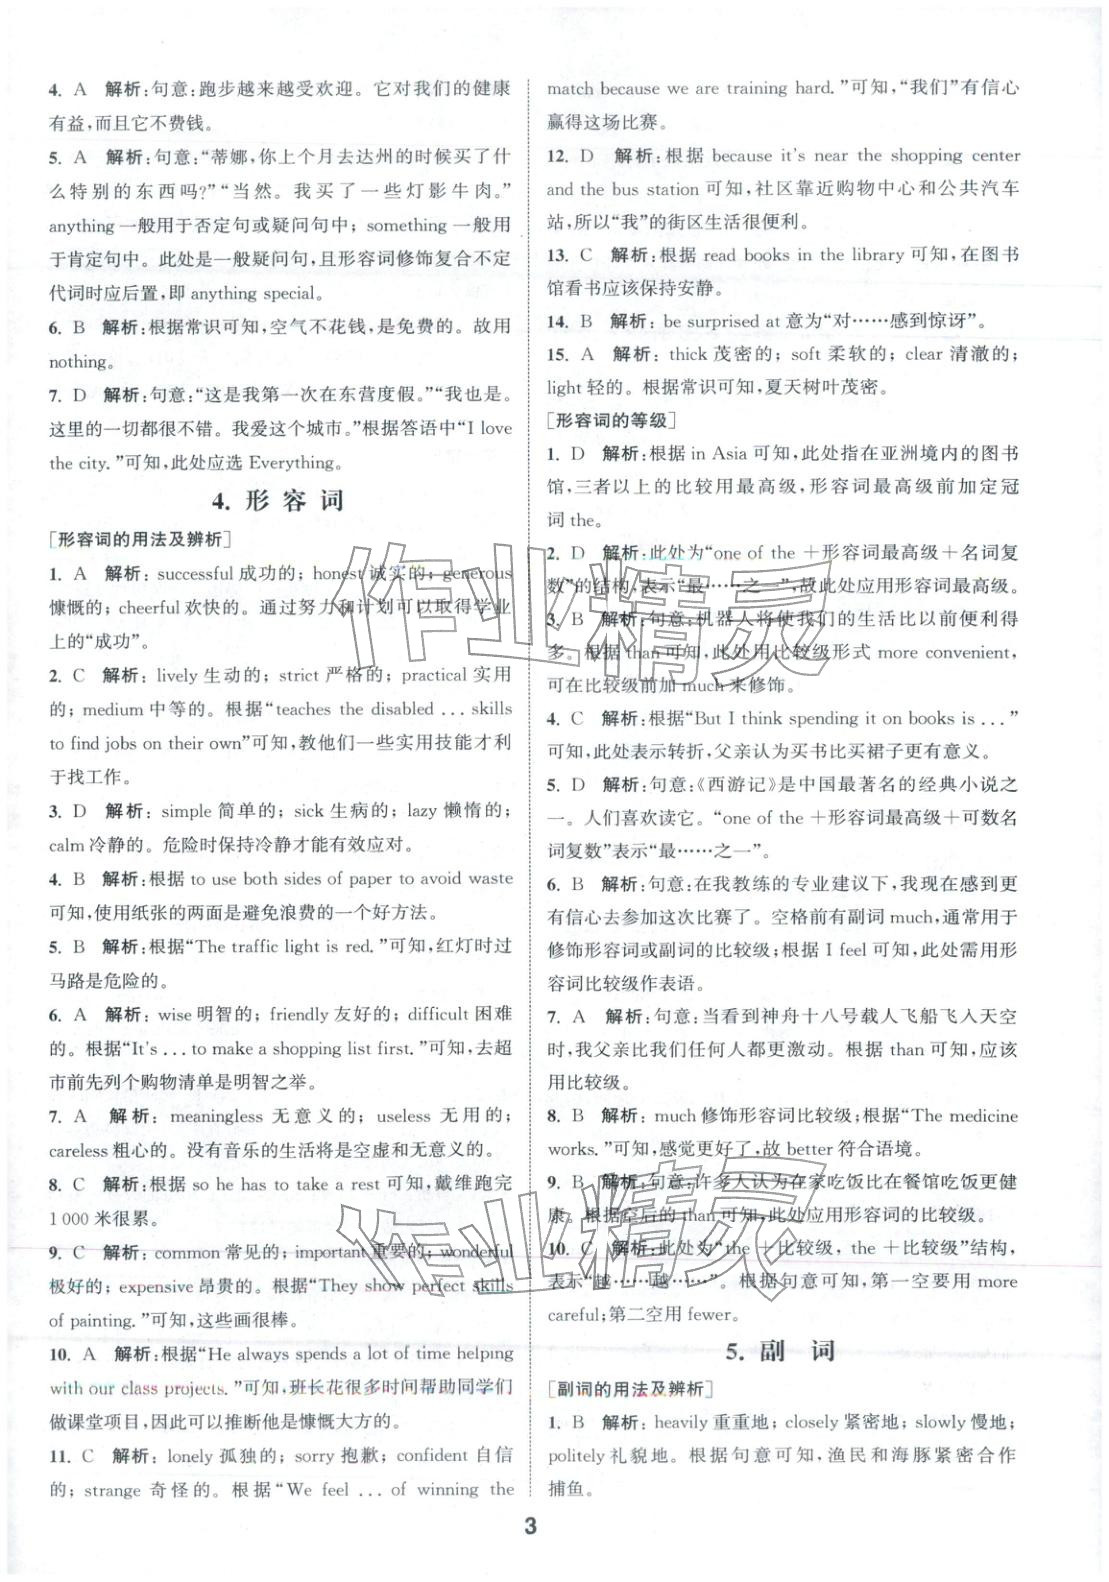 4. A 解析:句意:跑步越来越受欢迎。它对我们的健康
有益,而且它不费钱。
5. A 解析:句意:“蒂娜,你上个月去达州的时候买了什
么特别的东西吗?”“当然。我买了一些灯影牛肉。”
anything 一般用于否定句或疑问句中; something 一般用
于肯定句中。此处是一般疑问句,且形容词修饰复合不定
代词时应后置,即 anything special。
6. B 解析:根据常识可知,空气不花钱,是免费的。故用
nothing。
7. D 解析:句意:“这是我第一次在东营度假。”“我也是。
这里的一切都很不错。我爱这个城市。”根据答语中“I love
the city.”可知,此处应选 Everything。
4. 形 容 词
[形容词的用法及辨析]
1. A 解析: successful 成功的; honest 诚实的; generous
慷慨的; cheerful 欢快的。通过努力和计划可以取得学业
上的“成功”。
2. C 解析: lively 生动的; strict 严格的; practical 实用
的; medium 中等的。根据“teaches the disabled ... skills
to find jobs on their own”可知,教他们一些实用技能才利
于找工作。
3. D 解析: simple 简单的; sick 生病的; lazy 懒惰的;
calm 冷静的。危险时保持冷静才能有效应对。
4. B 解析:根据 to use both sides of paper to avoid waste
可知,使用纸张的两面是避免浪费的一个好方法。
5. B 解析:根据“The traffic light is red.”可知,红灯时过
马路是危险的。
6. A 解析: wise 明智的; friendly 友好的; difficult 困难
的。根据“It's ... to make a shopping list first.”可知,去超
市前先列个购物清单是明智之举。
7. A 解析: meaningless 无意义的; useless 无用的;
careless 粗心的。没有音乐的生活将是空虚和无意义的。
8. C 解析:根据 so he has to take a rest 可知,戴维跑完
1 000 米很累。
9. C 解析: common 常见的; important 重要的; wonderful
极好的; expensive 昂贵的。根据“They show perfect skills
of painting.”可知,这些画很棒。
10. A 解析:根据“He always spends a lot of time helping
with our class projects.”可知,班长花很多时间帮助同学们
做课堂项目,因此可以推断他是慷慨大方的。
11. C 解析: lonely 孤独的; sorry 抱歉; confident 自信
的; strange 奇怪的。根据“We feel ... of winning the
match because we are training hard.”可知,“我们”有信心
赢得这场比赛。
12. D 解析:根据 because it's near the shopping center
and the bus station 可知,社区靠近购物中心和公共汽车
站,所以“我”的街区生活很便利。
13. C 解析:根据 read books in the library 可知,在图书
馆看书应该保持安静。
14. B 解析: be surprised at 意为“对……感到惊讶”。
15. A 解析: thick 茂密的; soft 柔软的; clear 清澈的;
light 轻的。根据常识可知,夏天树叶茂密。
[形容词的等级]
1. D 解析:根据 in Asia 可知,此处指在亚洲境内的图书
馆,三者以上的比较用最高级,形容词最高级前加定冠
词 the。
2. D 解析:此处为“one of the +形容词最高级+名词复
数”的结构,表示“最……之一”,故此处应用形容词最高级。
3. B 解析:句意:机器人将使我们的生活比以前便利得
多。根据 than 可知,此处用比较级形式 more convenient,
可在比较级前加 much 来修饰。
4. C 解析:根据“But I think spending it on books is ...”
可知,此处表示转折,父亲认为买书比买裙子更有意义。
5. D 解析:句意:《西游记》是中国最著名的经典小说之
一。人们喜欢读它。“one of the +形容词最高级+可数名
词复数”表示“最……之一”。
6. B 解析:句意:在我教练的专业建议下,我现在感到更
有信心去参加这次比赛了。空格前有副词 much,通常用于
修饰形容词或副词的比较级;根据 I feel 可知,此处需用形
容词比较级作表语。
7. A 解析:句意:当看到神舟十八号载人飞船飞入天空
时,我父亲比我们任何人都更激动。根据 than 可知,应该
用比较级。
8. B 解析: much 修饰形容词比较级;根据“The medicine
works.”可知,感觉更好了,故 better 符合语境。
9. B 解析:句意:许多人认为在家吃饭比在餐馆吃饭更健
康。根据空后的 than 可知,此处应用形容词的比较级。
10. C 解析:此处为“the +比较级, the +比较级”结构,
表示“越……越……”。根据句意可知,第一空要用 more
careful;第二空用 fewer。
5. 副 词
[副词的用法及辨析]
1. B 解析: heavily 重重地; closely 紧密地; slowly 慢地;
politely 礼貌地。根据句意可知,渔民和海豚紧密合作
捕鱼。
3
作业精灵
作业精灵